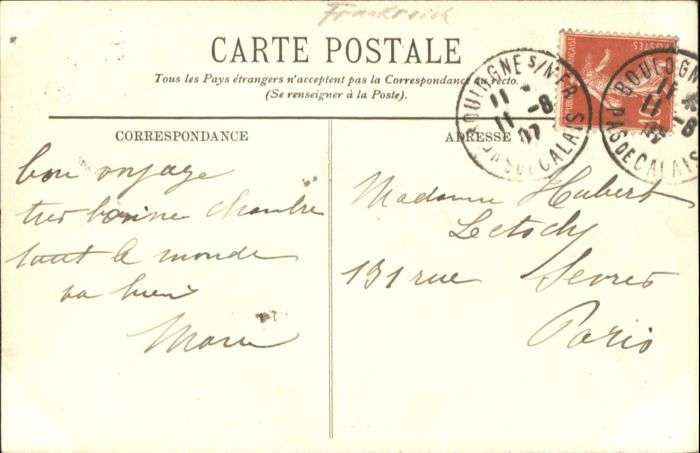 Frankreich
CARTE POSTALE
Tous les Pays étrangers n'acceptent pas la Correspondance au recto.
(Se renseigner à la Poste).
CORRESPONDANCE
ADRESSE
bon voyage
tres bonne chambre
tout le monde
va bien
Marie
Madame Hubert
Letochy
131 rue Sevres
Paris
BOULOGNE S/MER
11 -8
11
07
PAS DE CALAIS
BOULOGN
11
11 -8
07
PAS DE CALAIS
POSTES
10